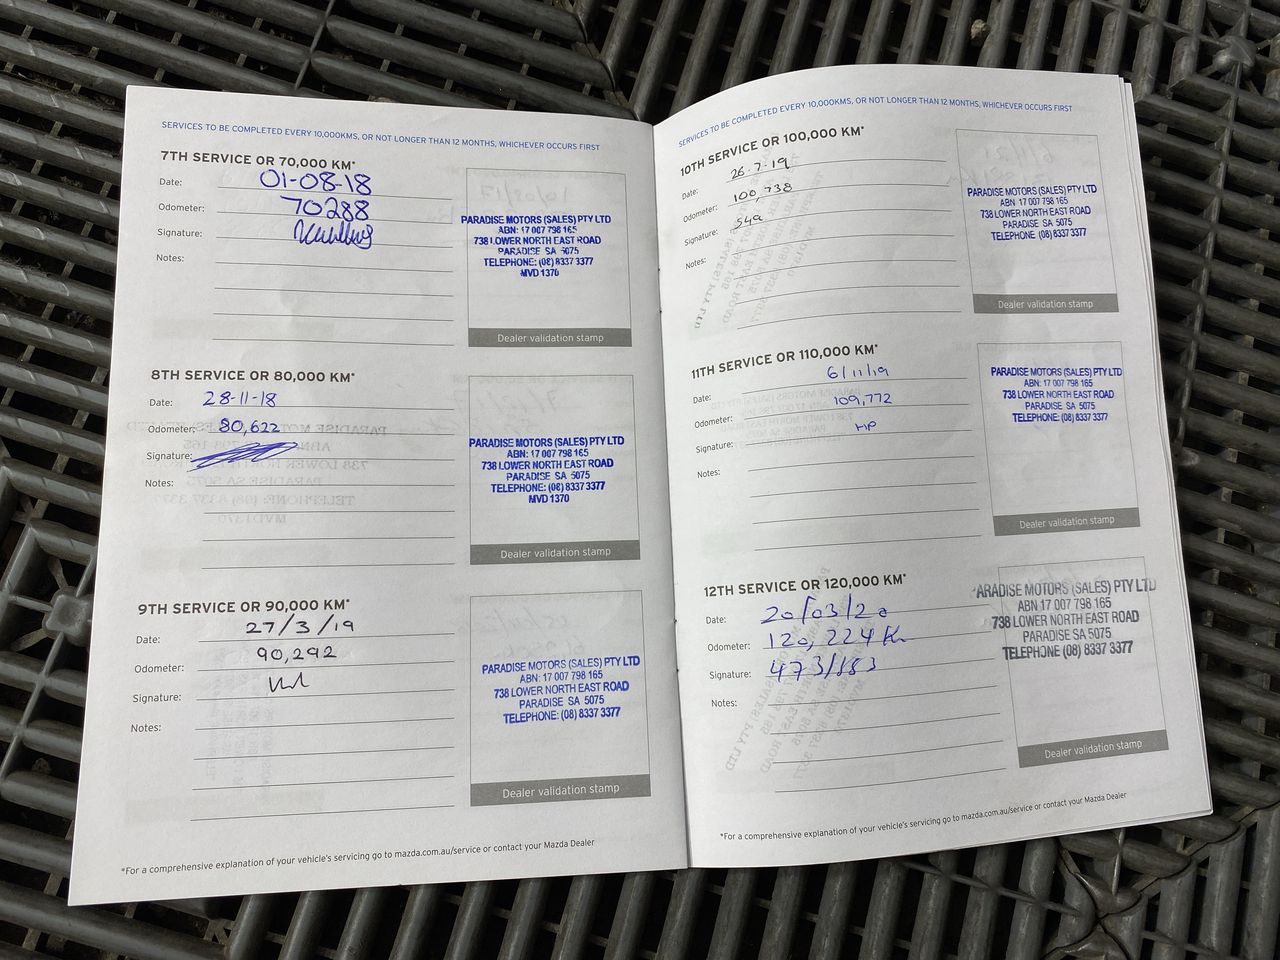 SERVICES TO BE COMPLETED EVERY 10,000KMS, OR NOT LONGER THAN 12 MONTHS, WHICHEVER OCCURS FIRST
7TH SERVICE OR 70,000 KM*
Date: 01-08-18
Odometer: 70288
Signature:
Notes:
PARADISE MOTORS (SALES) PTY LTD
ABN: 17 007 798 165
738 LOWER NORTH EAST ROAD
PARADISE SA 5075
TELEPHONE: (08) 8337 3377
MVD 1370
Dealer validation stamp
8TH SERVICE OR 80,000 KM*
Date: 28-11-18
Odometer: 80,622
Signature:
Notes:
PARADISE MOTORS (SALES) PTY LTD
ABN: 17 007 798 165
738 LOWER NORTH EAST ROAD
PARADISE SA 5075
TELEPHONE: (08) 8337 3377
MVD 1370
Dealer validation stamp
9TH SERVICE OR 90,000 KM*
Date: 27/3/19
Odometer: 90,292
Signature:
Notes:
PARADISE MOTORS (SALES) PTY LTD
ABN: 17 007 798 165
738 LOWER NORTH EAST ROAD
PARADISE SA 5075
TELEPHONE: (08) 8337 3377
Dealer validation stamp
*For a comprehensive explanation of your vehicle's servicing go to mazda.com.au/service or contact your Mazda Dealer
SERVICES TO BE COMPLETED EVERY 10,000KMS, OR NOT LONGER THAN 12 MONTHS, WHICHEVER OCCURS FIRST
10TH SERVICE OR 100,000 KM*
Date: 26-7-19
Odometer: 100,738
Signature:
Notes:
PARADISE MOTORS (SALES) PTY LTD
ABN: 17 007 798 165
738 LOWER NORTH EAST ROAD
PARADISE SA 5075
TELEPHONE: (08) 8337 3377
Dealer validation stamp
11TH SERVICE OR 110,000 KM*
Date: 6/11/19
Odometer: 109,772
Signature: HP
Notes:
PARADISE MOTORS (SALES) PTY LTD
ABN: 17 007 798 165
738 LOWER NORTH EAST ROAD
PARADISE SA 5075
TELEPHONE: (08) 8337 3377
Dealer validation stamp
12TH SERVICE OR 120,000 KM*
Date: 20/03/20
Odometer: 120,224 Km
Signature:
Notes:
ARADISE MOTORS (SALES) PTY LTD
ABN 17 007 798 165
738 LOWER NORTH EAST ROAD
PARADISE SA 5075
TELEPHONE (08) 8337 3377
Dealer validation stamp
*For a comprehensive explanation of your vehicle's servicing go to mazda.com.au/service or contact your Mazda Dealer